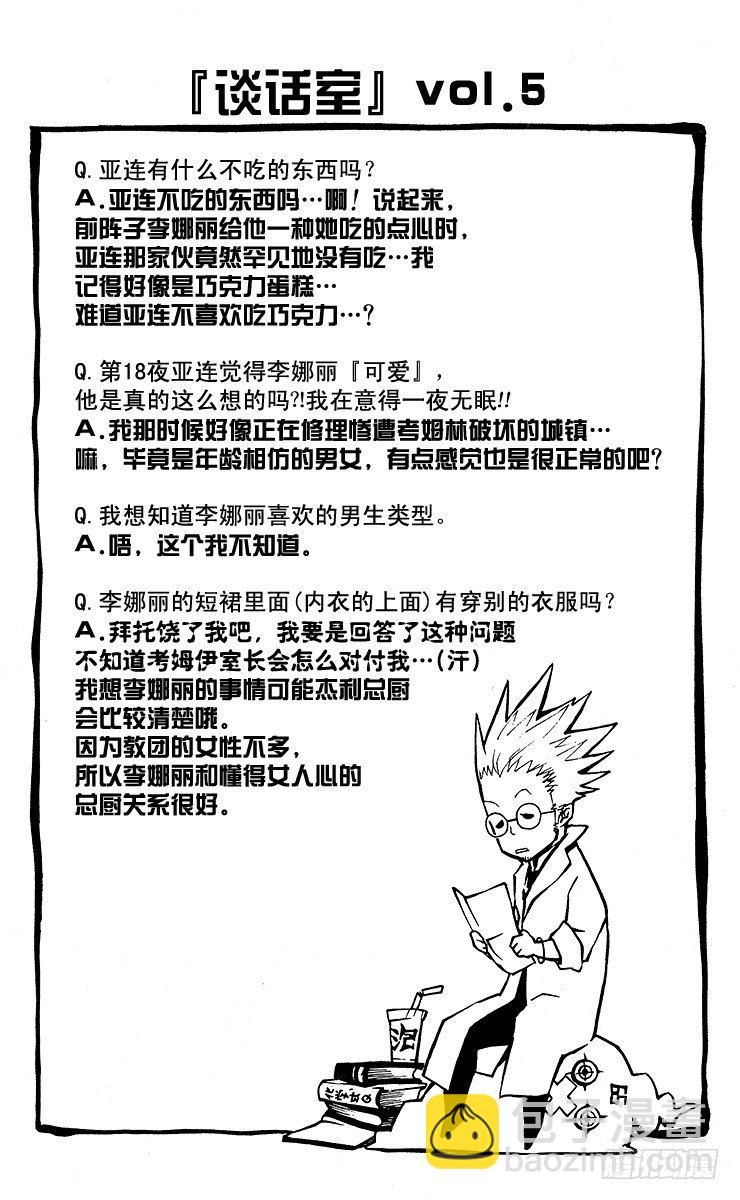 『谈话室』vol.5
Q.亚连有什么不吃的东西吗？
A.亚连不吃的东西吗…啊！说起来，
前阵子李娜丽给他一种她吃的点心时，
亚连那家伙竟然罕见地没有吃…我
记得好像是巧克力蛋糕…
难道亚连不喜欢吃巧克力…？
Q.第18夜亚连觉得李娜丽『可爱』，
他是真的这么想的吗?!我在意得一夜无眠!!
A.我那时候好像正在修理惨遭考姆林破坏的城镇…
嘛，毕竟是年龄相仿的男女，有点感觉也是很正常的吧？
Q.我想知道李娜丽喜欢的男生类型。
A.唔，这个我不知道。
Q.李娜丽的短裙里面(内衣的上面)有穿别的衣服吗？
A.拜托饶了我吧，我要是回答了这种问题
不知道考姆伊室长会怎么对付我…(汗)
我想李娜丽的事情可能杰利总厨
会比较清楚哦。
因为教团的女性不多，
所以李娜丽和懂得女人心的
总厨关系很好。
包子漫畫
baozimh.com